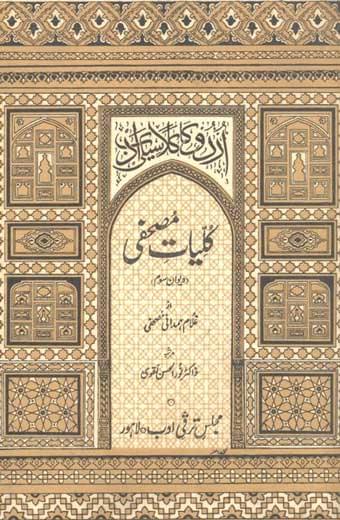 اردو کا کلاسیکی ادب
کلیات مصحفی
(دیوان سوم)
از
غلام ہمدانی مصحفی
مرتبہ
ڈاکٹر نور الحسن نقوی
مجلس ترقی ادب، لاہور